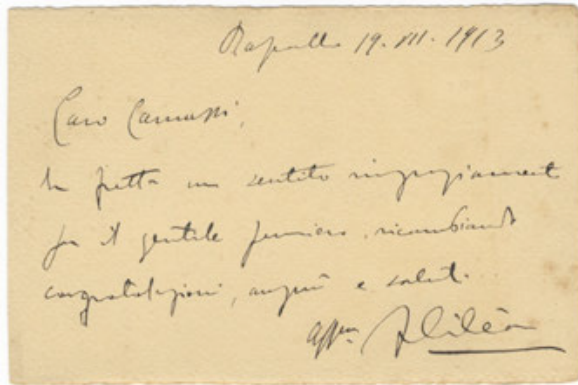 Rapallo 19.VII.1913
Caro Camussi,
In fretta un sentito ringraziamento
per il gentile pensiero, ricambiando
congratulazioni, auguri e saluti.
aff.mo